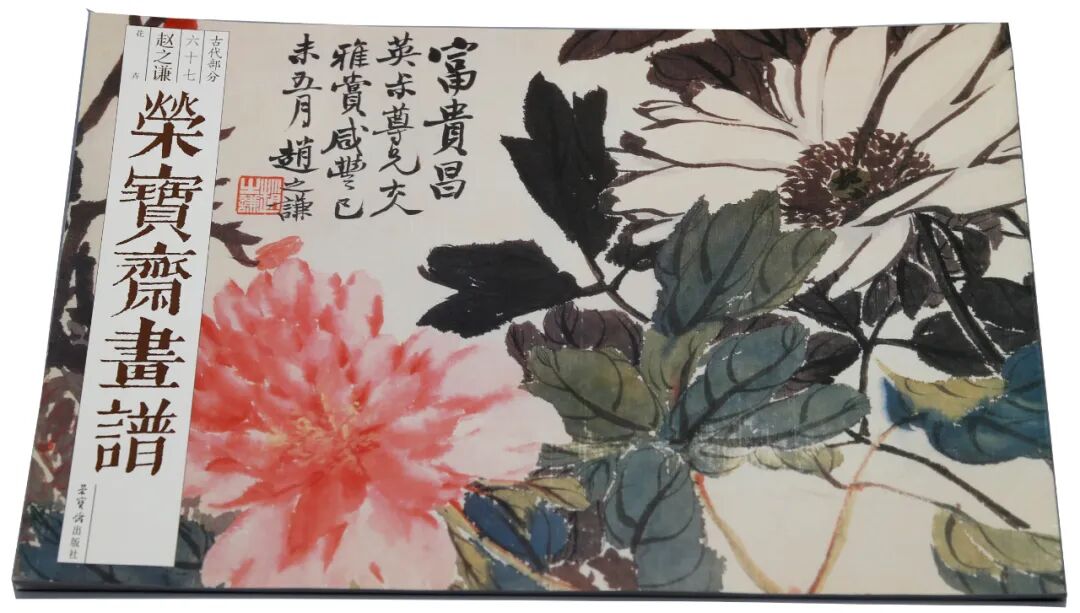 古代部分
六十七
赵之谦
花卉
榮寶齋畫譜
荣宝斋出版社
富貴昌
英尗尊兄大
雅賞咸豐己
未五月趙之謙